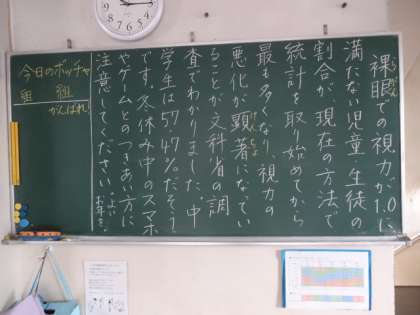 裸眼での視力が1.0に
満たない児童・生徒の
割合が、現在の方法で
統計を取り始めてから
最も多くなり、視力の
悪化が顕著になってい
ることが文科省の調
査でわかりました。中
学生は57.47%だそう
です。冬休み中のスマホ
やゲームとのつきあい方に
注意してください。よい
お年を。
今日のボッチャ
組 組
がんばれ!